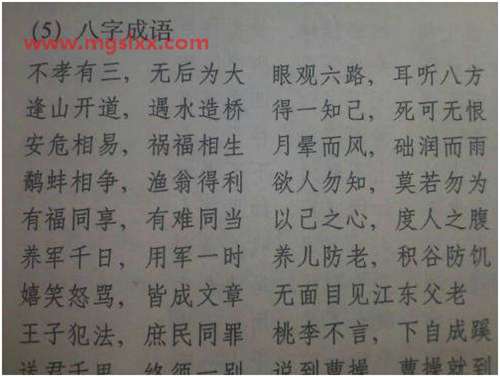 (5) 八字成语
www.mgslxx.com
不孝有三，无后为大 眼观六路，耳听八方
逢山开道，遇水造桥 得一知己，死可无恨
安危相易，祸福相生 月晕而风，础润而雨
鹬蚌相争，渔翁得利 欲人勿知，莫若勿为
有福同享，有难同当 以己之心，度人之腹
养军千日，用军一时 养儿防老，积谷防饥
嬉笑怒骂，皆成文章 无面目见江东父老
王子犯法，庶民同罪 桃李不言，下自成蹊
送君千里，终须一别 说到曹操，曹操就到